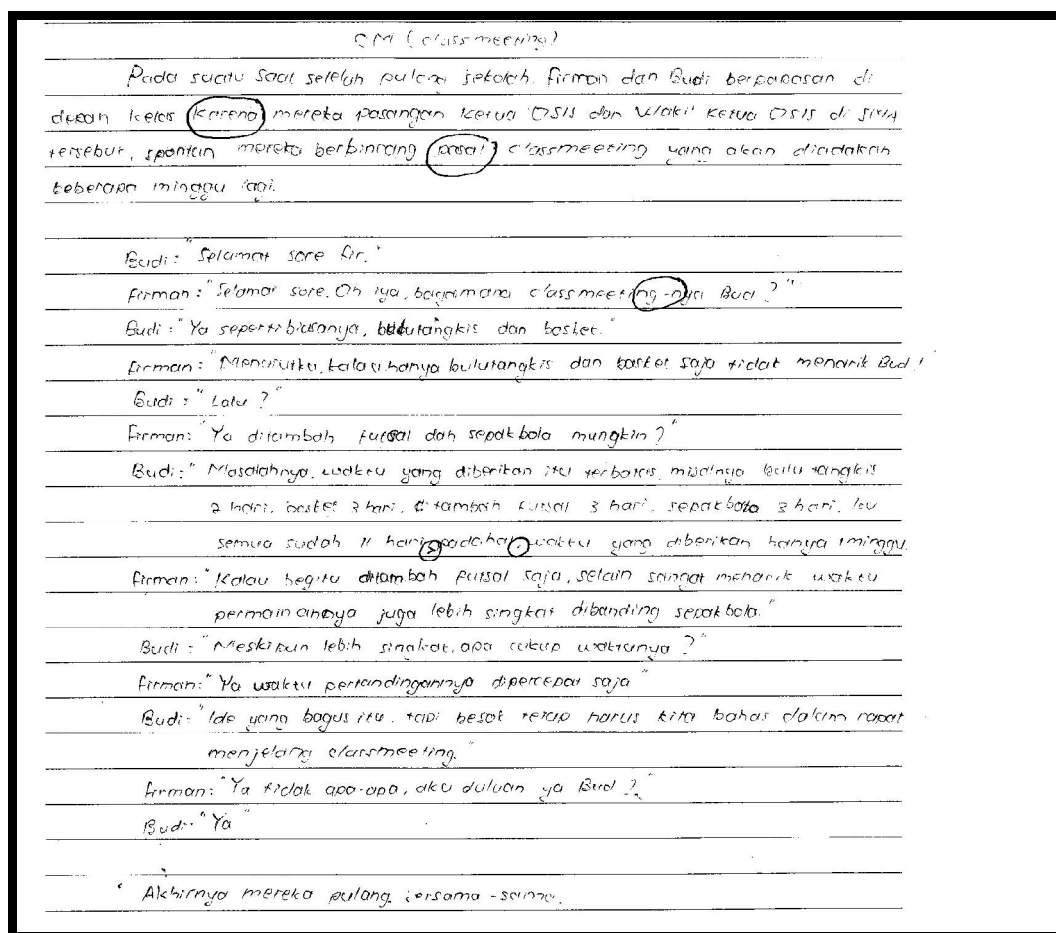 CM (classmeeting)
Pada suatu saat setelah pulang sekolah. Firman dan Budi berpapasan di
depan kelas karena mereka pasangan Ketua OSIS dan Wakil Ketua OSIS di SMA
tersebut, spontan mereka berbincang pasal classmeeting yang akan diadakan
beberapa minggu lagi.
Budi : "Selamat sore Fir."
Firman : "Selamat sore. Oh iya, bagaimana classmeeting-nya Bud ?"
Budi : "Ya seperti biasanya, bulutangkis dan basket."
Firman : "Menurutku, kalau hanya bulutangkis dan basket saja tidak menarik Bud !
Budi : "Lalu ?"
Firman : "Ya ditambah futsal dan sepakbola mungkin ?"
Budi : "Masalahnya, waktu yang diberikan itu terbatas, misalnya bulu tangkis
2 hari, basket 3 hari, ditambah futsal 3 hari, sepakbola 3 hari. Itu
semua sudah 11 hari, padahal, waktu yang diberikan hanya 1 minggu.
Firman : "Kalau begitu ditambah futsal saja, selain sangat menarik waktu
permainannya juga lebih singkat dibanding sepakbola."
Budi : "Meskipun lebih singkat, apa cukup waktunya ?"
Firman : "Ya waktu pertandingannya dipercepat saja"
Budi : "Ide yang bagus itu, tapi besok tetap harus kita bahas dalam rapat
menjelang classmeeting."
Firman : "Ya tidak apa-apa, aku duluan ya Bud ?"
Budi : "Ya"
Akhirnya mereka pulang bersama-sama.